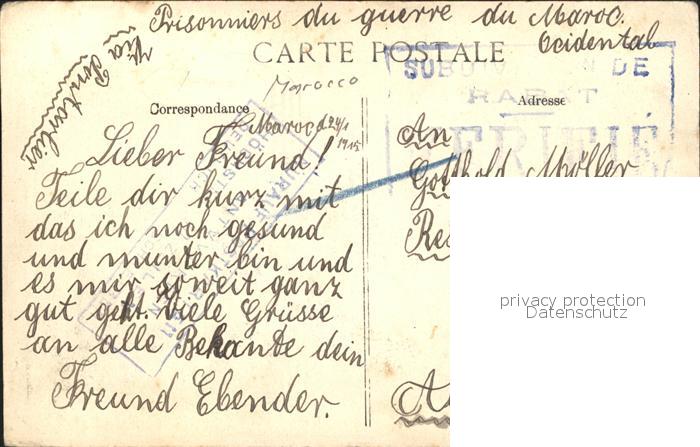 Prisonniers du guerre du Maroc.
Ocidental
Via Pontarlier
CARTE POSTALE
Morocco
SUBDIVISION DE
RABAT
VERIFIÉ
Correspondance
Adresse
Maroc d 24/1
1915
Lieber Freund!
Teile dir kurz mit
das ich noch gesund
und munter bin und
es mir soweit ganz
gut geht. Viele Grüsse
an alle Bekante dein
Freund Ebender.
An
Gotthold Möller
privacy protection
Datenschutz